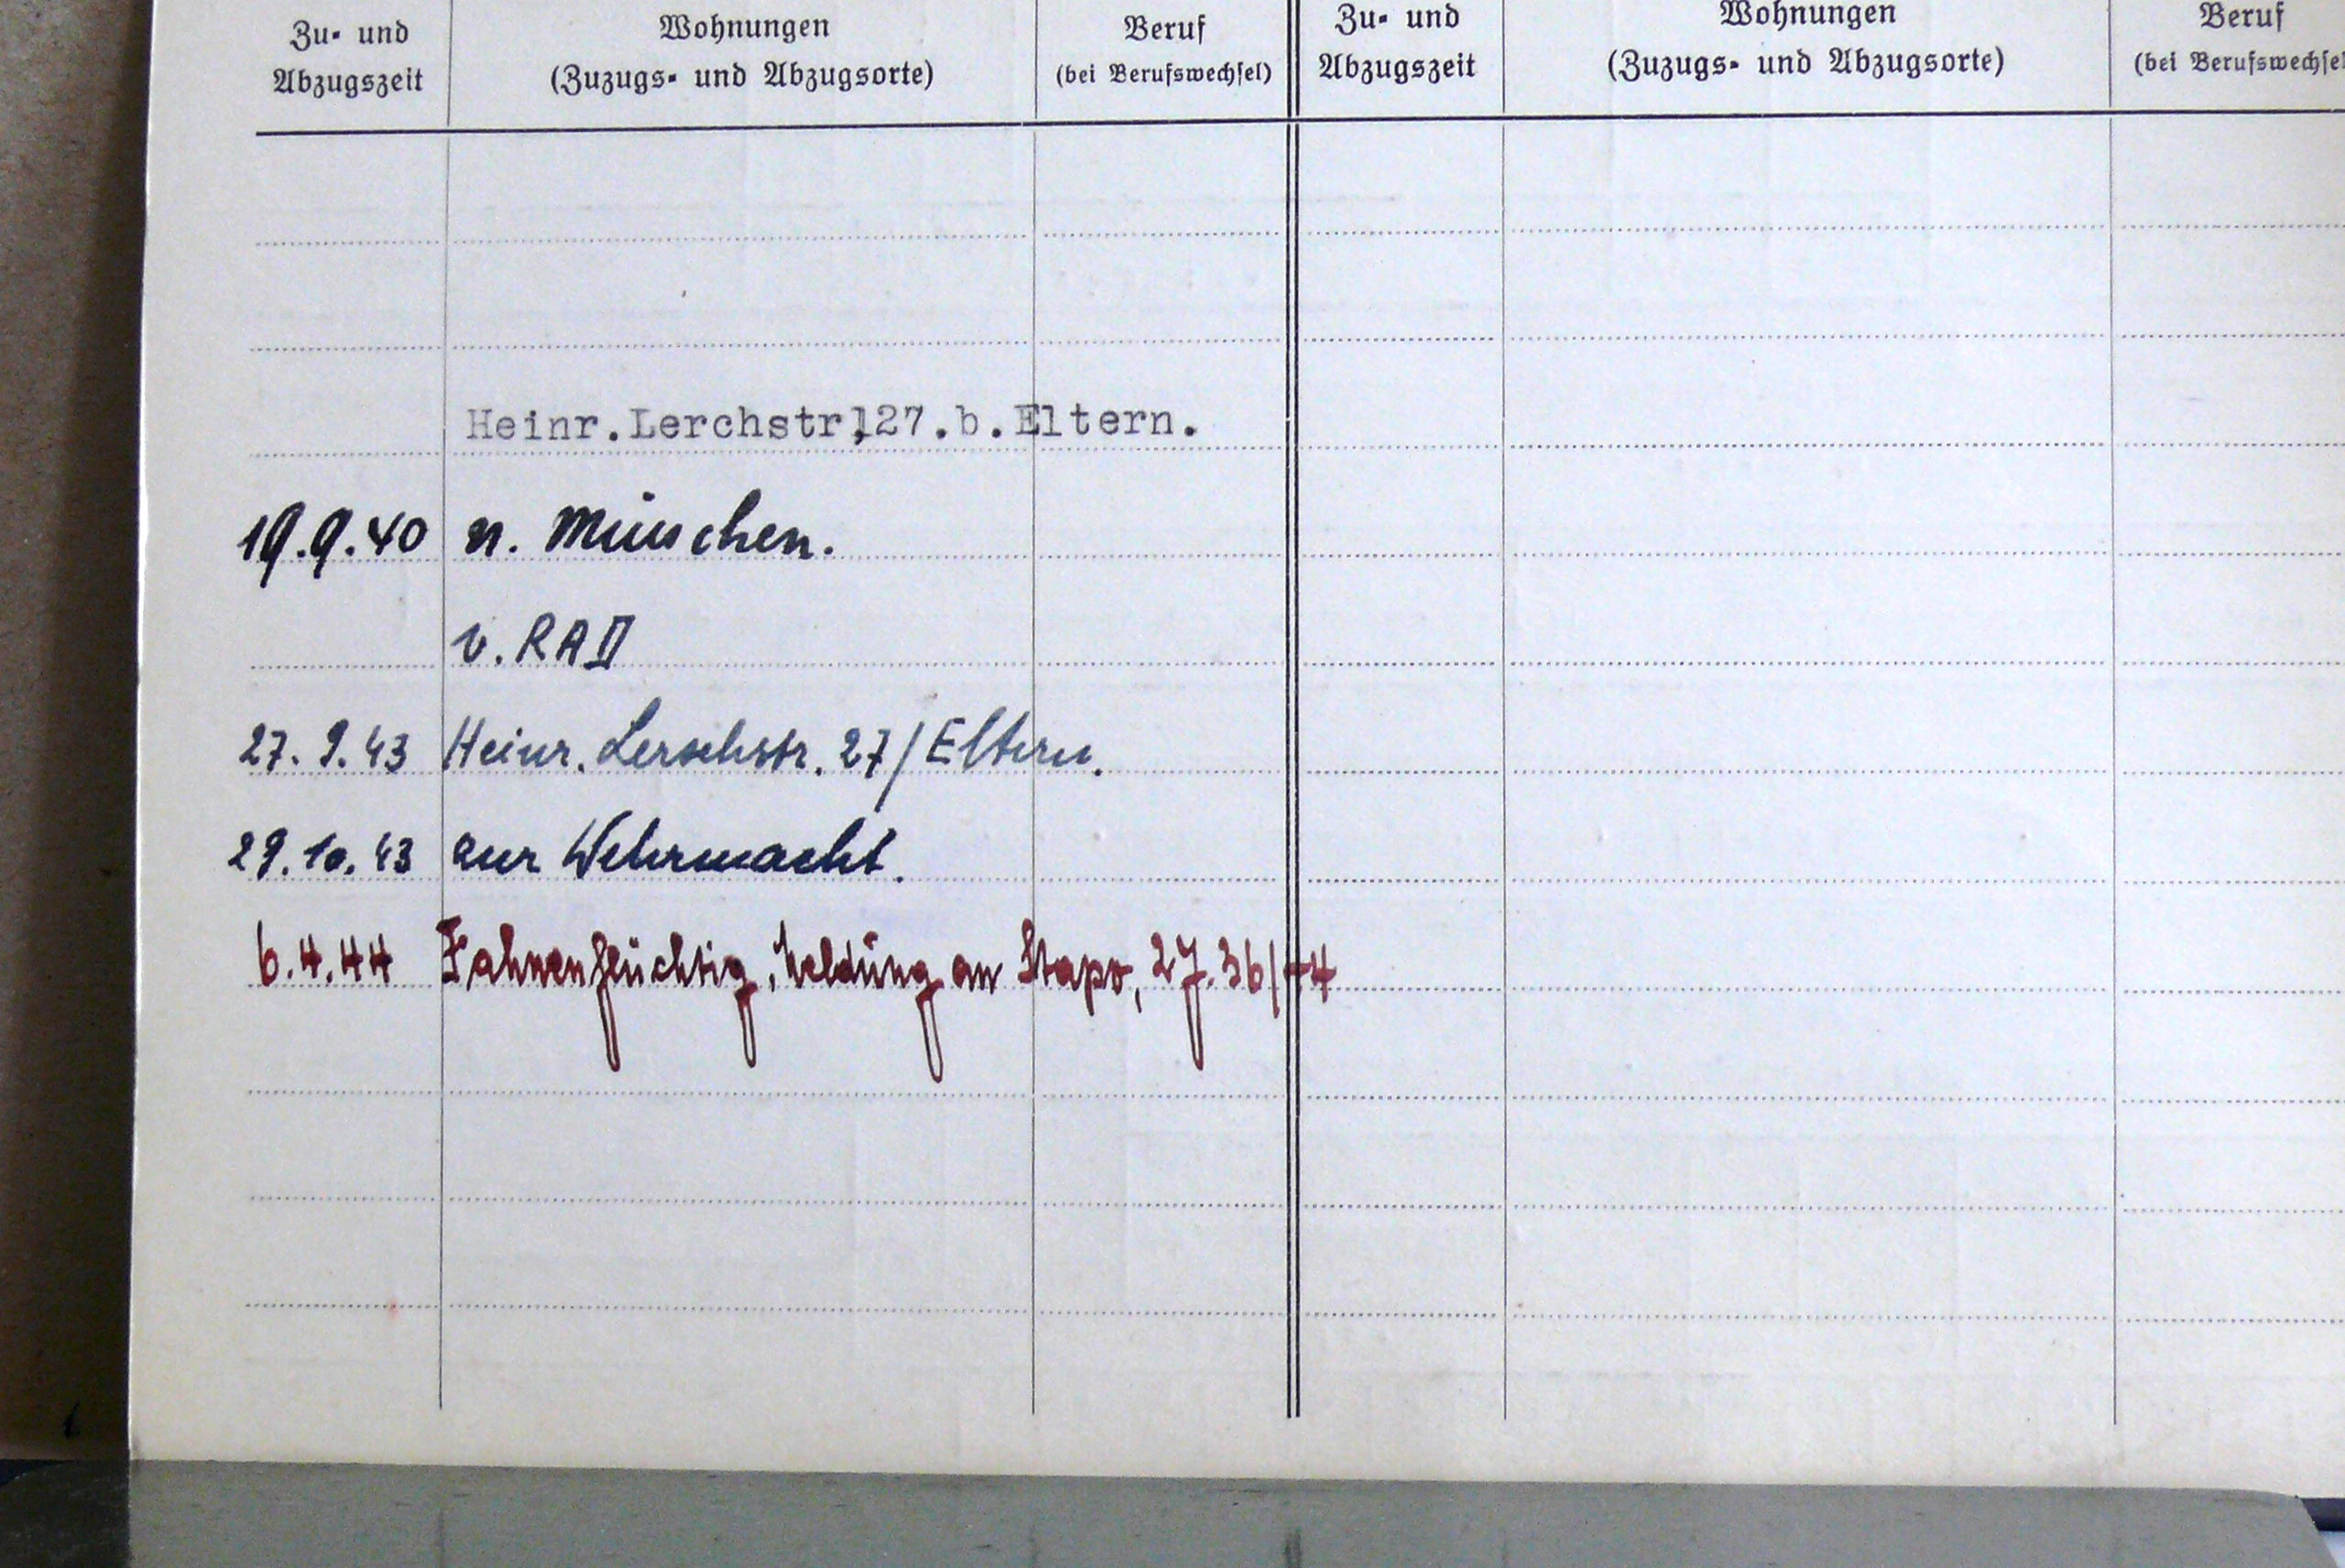 Zu- und
Abzugszeit
Wohnungen
(Zuzugs- und Abzugsorte)
Beruf
(bei Berufswechsel)
Zu- und
Abzugszeit
Wohnungen
(Zuzugs- und Abzugsorte)
Beruf
(bei Berufswechsel
Heinr.Lerchstr,127.b.Eltern.
19.9.40 n. München.
v. RAD
27.9.43 Heinr. Lerschstr. 27/Eltern.
29.10.43 zur Wehrmacht.
6.4.44 Fahnenflüchtig, Meldung an Stapo, 27.36/44